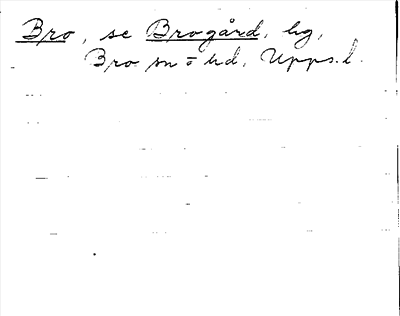 Bro, se Brogård, hg,
Bro sn o hd, Upps. l.